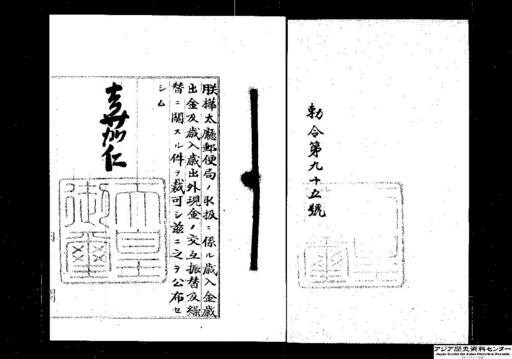 勅令第九十五號
朕樺太廳郵便局ノ取扱ニ係ル歳入金歳
出金及歳入歳出外現金ノ交互振替及繰
替ニ關スル件ヲ裁可シ茲ニ之ヲ公布セ
シム
嘉仁
天皇
御璽
アジア歴史資料センター
Japan Center for Asian Historical Records